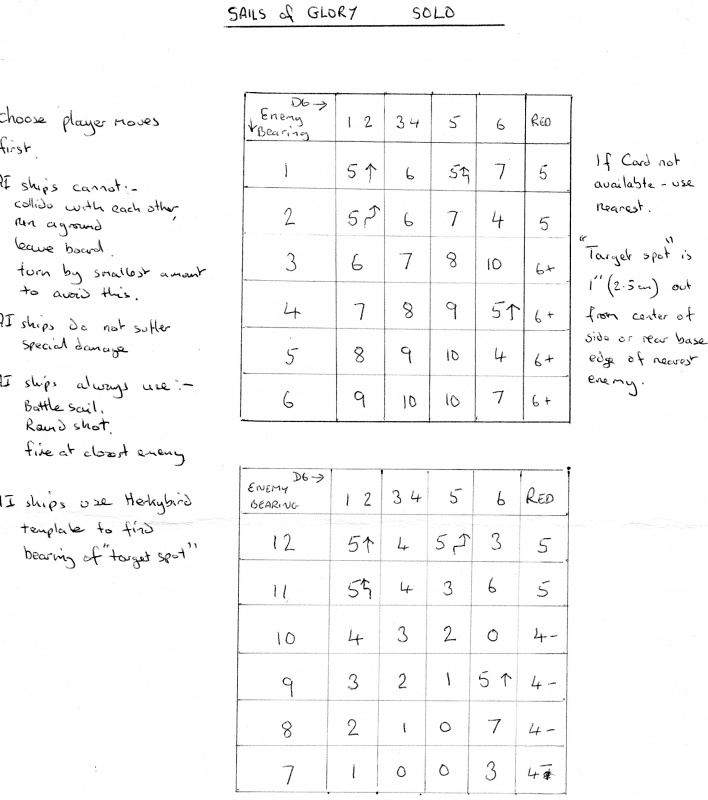 SAILS of GLORY SOLO
Choose player moves
first.
AI ships cannot:-
collide with each other,
run aground
leave board.
turn by smallest amount
to avoid this.
AI ships do not suffer
special damage
AI ships always use:-
Battle sail.
Round shot.
fire at closest enemy
AI ships use Herkybird
template to find
bearing of "target spot"
D6→
Enemy
↓Bearing
1 2 3 4 5 6 RED
1 5↑ 6 5↰ 7 5
2 5↱ 6 7 4 5
3 6 7 8 10 6+
4 7 8 9 5↑ 6+
5 8 9 10 4 6+
6 9 10 10 7 6+
If Card not
available - use
nearest.
"Target spot" is
1" (2.5cm) out
from center of
side or rear base
edge of nearest
enemy.
D6→
ENEMY
BEARING
1 2 3 4 5 6 RED
12 5↑ 4 5↱ 3 5
11 5↰ 4 3 6 5
10 4 3 2 0 4-
9 3 2 1 5↑ 4-
8 2 1 0 7 4-
7 1 0 0 3 4-